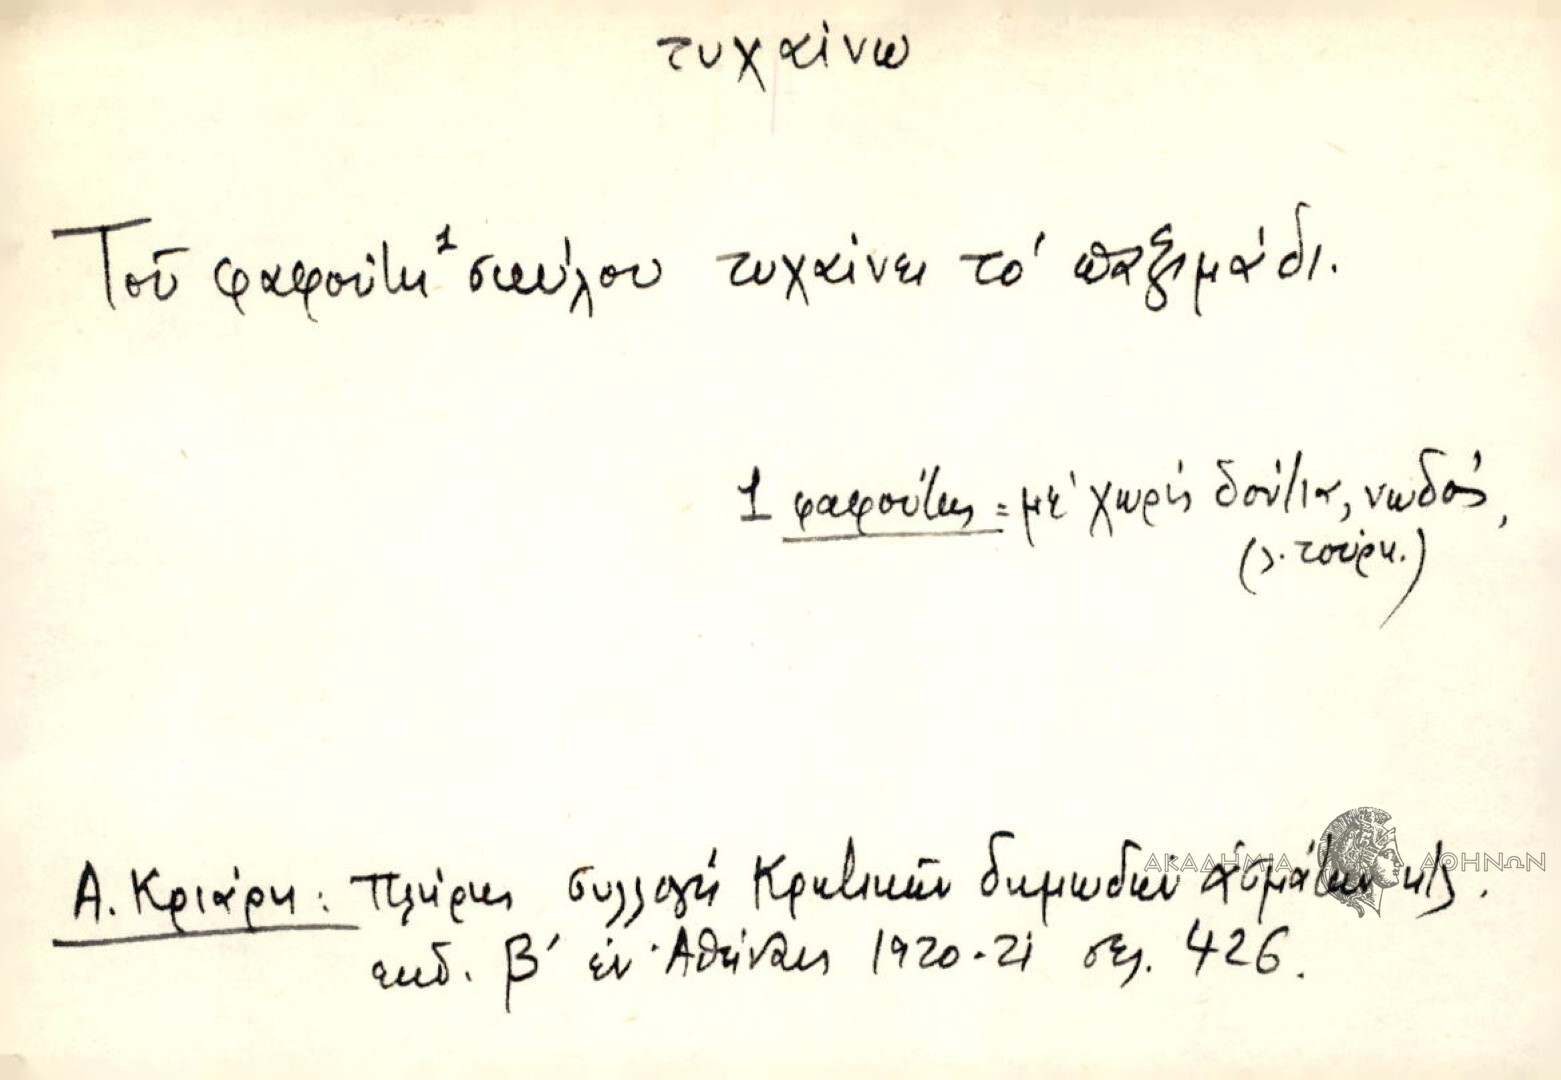 τυχαίνω
Τοῦ φαφούτη¹ σκύλου τυχαίνει τό παξιμάδι.
1 φαφούτης = μέ χωρίς δόντια, νωδός,
(λ. τούρκ.)
ΑΚΑΔΗΜΙΑ ΑΘΗΝΩΝ
Α. Κριάρη: Πλήρης συλλογή Κρητικῶν δημωδῶν ᾀσμάτων κτλ.
εκδ. β' ἐν Ἀθήναις 1920-21 σελ. 426.